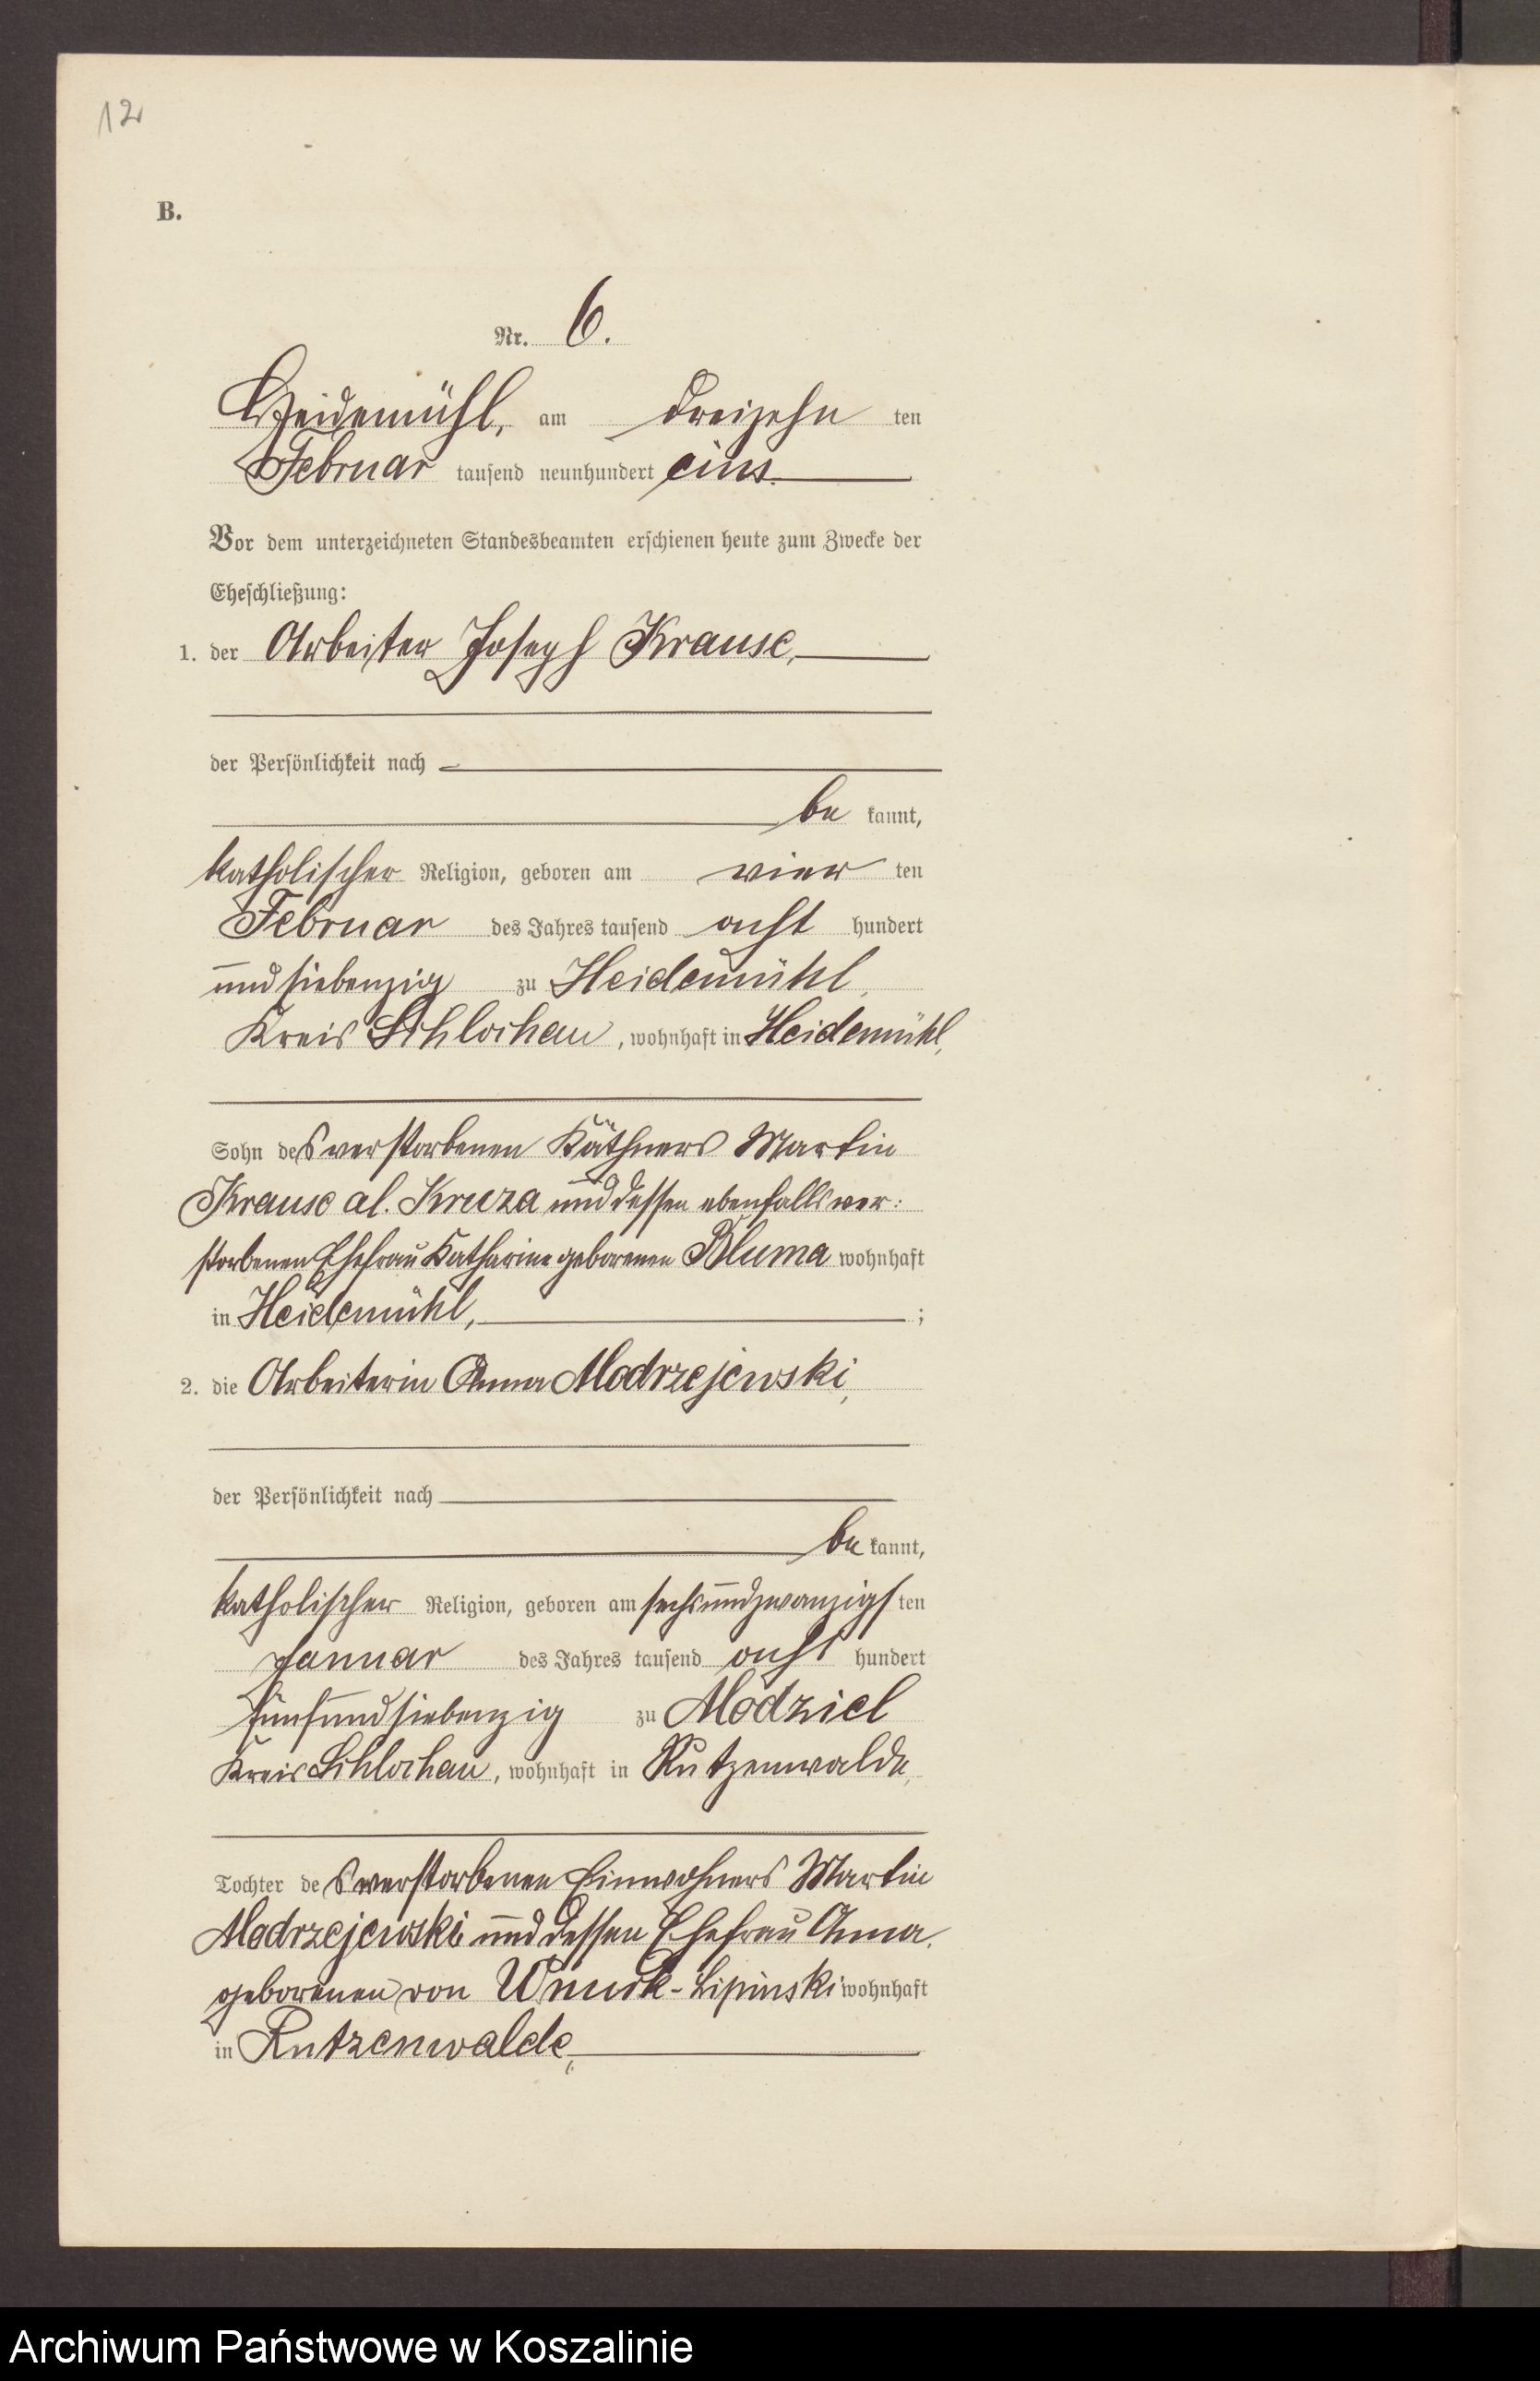 12
B.
Nr. 6.
Heidemühl, am dreizehn ten
Februar tausend neunhundert eins.
Vor dem unterzeichneten Standesbeamten erschienen heute zum Zwecke der
Eheschließung:
1. der Arbeiter Joseph Krause,
der Persönlichkeit nach
be kannt,
katholischer Religion, geboren am vier ten
Februar des Jahres tausend acht hundert
und siebenzig zu Heidemühl,
Kreis Schlochau, wohnhaft in Heidemühl,
Sohn des verstorbenen Käthners Martin
Krause al. Kruza und dessen ebenfalls ver:
storbenen Ehefrau Katharine geborenen Bluma wohnhaft
in Heidemühl, ;
2. die Arbeiterin Anna Modrzejewski,
der Persönlichkeit nach
be kannt,
katholischer Religion, geboren am sechsundzwanzigs ten
Januar des Jahres tausend acht hundert
fünfundsiebenzig zu Modziel
Kreis Schlochau, wohnhaft in Rutzenwalde,
Tochter des verstorbenen Einwohners Martin
Modrzejewski und dessen Ehefrau Anna
geborenen von Wnuck-Lipinski wohnhaft
in Rutzenwalde,
Archiwum Państwowe w Koszalinie